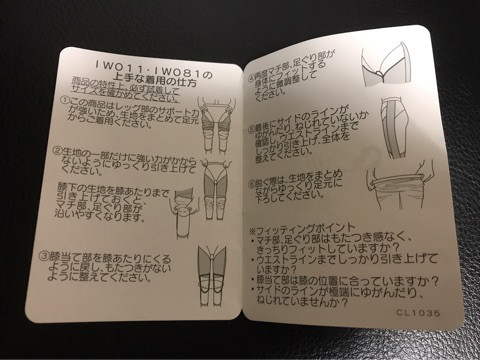 IW011・IW081の
上手な着用の仕方
商品の特性上、必ず試着して
サイズを確かめてください。
①この商品はレッグ部のサポート力
が強いため、生地をまとめて足元
からご着用ください。
②生地の一部だけに強い力がかから
ないようにゆっくり引き上げて
ください。
膝下の生地を膝あたりまで
引き上げておくと、
マチ部、足ぐり部が
沿いやすくなります。
③膝当て部を膝あたりにくる
ように戻し、もたつきがない
ように整えてください。
④再度マチ部、足ぐり部が
身体にフィットする
ように微調整して
ください。
⑤最後にサイドのラインが
ゆがんだり、ねじれていないか
確認し、ウエストラインまで
しっかり引き上げ、全体を
整えてください。
⑥脱ぐ際は、生地をまとめ
ながらゆっくり足元に
下ろしてください。
※フィッティングポイント
・マチ部、足ぐり部はもたつき感なく、
きっちりフィットしていますか？
・ウエストラインまでしっかり引き上げて
いますか？
・膝当て部は膝の位置に合っていますか？
・サイドのラインが極端にゆがんだり、
ねじれていませんか？
CL1035